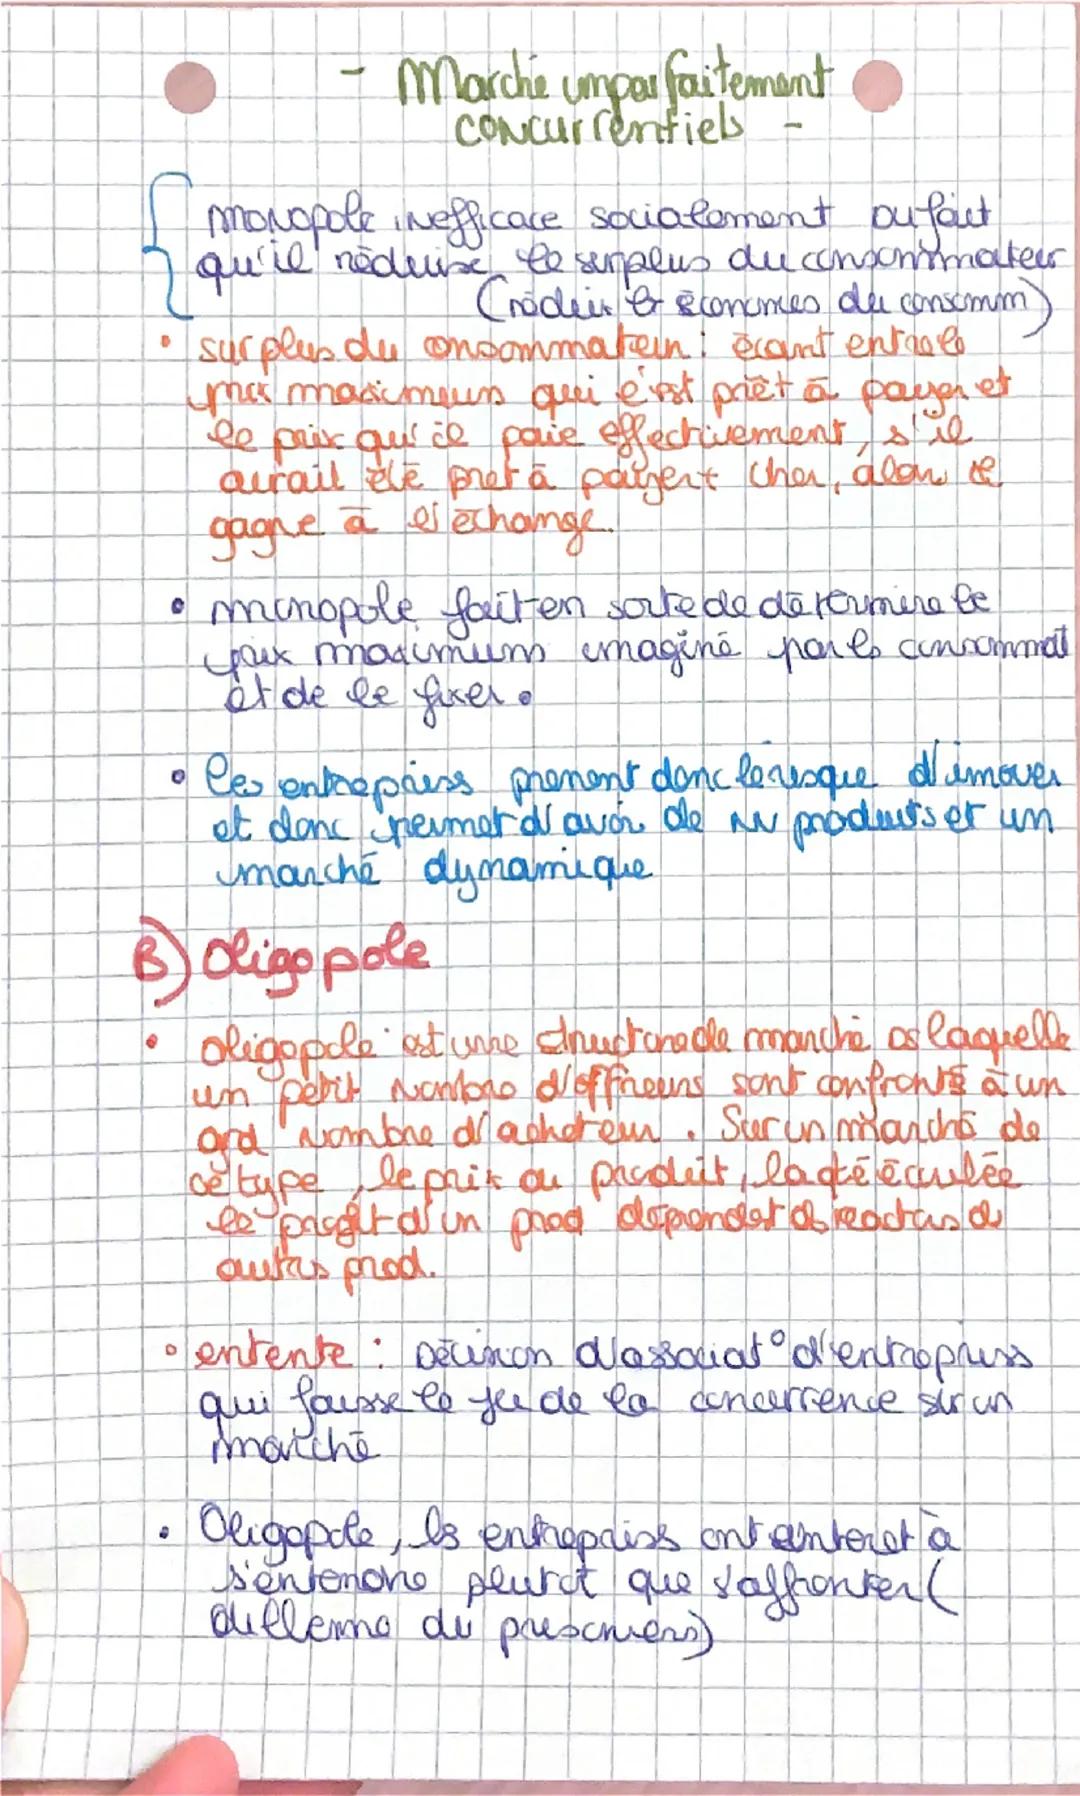 - Marché imparfaitement
concurrentiels -
monopole inefficace socialement du fait
qu'il réduise le surplus du consommateur
(réduir les économies du consomm)
• surplus du consommateur : écart entre le
prix maximum qui é'est prêt à payer et
le prix qu'il paie effectivement, s'il
aurait été pret à payer + cher, alors il
gagne à l'échange.
• monopole fait en sorte de déterminer le
prix maximum imaginé par les consommat
et de le fixer.
• les entrepriss prenent donc le risque d'inover
et donc permet d'avoir de nv produits et un
marché dynamique
B) Oligopole
• oligopole est une structure de marché ds laquelle
un petit nombre d'offreurs sont confrontés à un
grd nombre d'acheteur. Sur un marché de
ce type, le prix du produit, la qté écoulée
le profit d'un prod dépendent ds reactns ds
autrs prod.
• entente : Décision d'associat° d'entrepriss
qui fausse le jeu de la concurrence sur un
marché
• Oligopole, ls entrepriss ont interet à
s'entendre plutot que s'affronter (
dillemme du prisonniers)